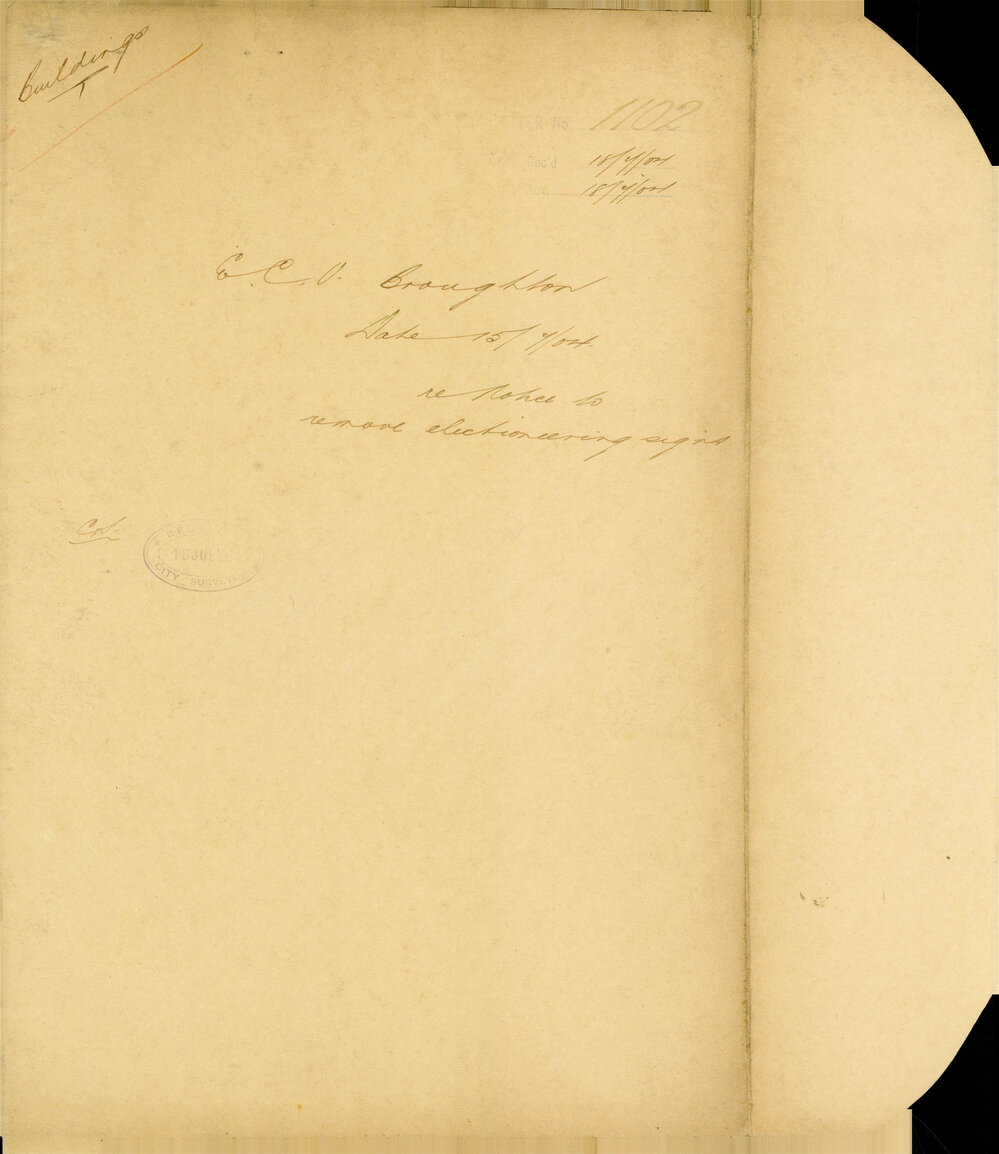 Buildings
1102
Rec'd 18/7/04
18/7/04
E. C. V. Broughton
Date 15/7/04.
re Notice to
remove electioneering signs
18 JUL
CITY SURVEYOR